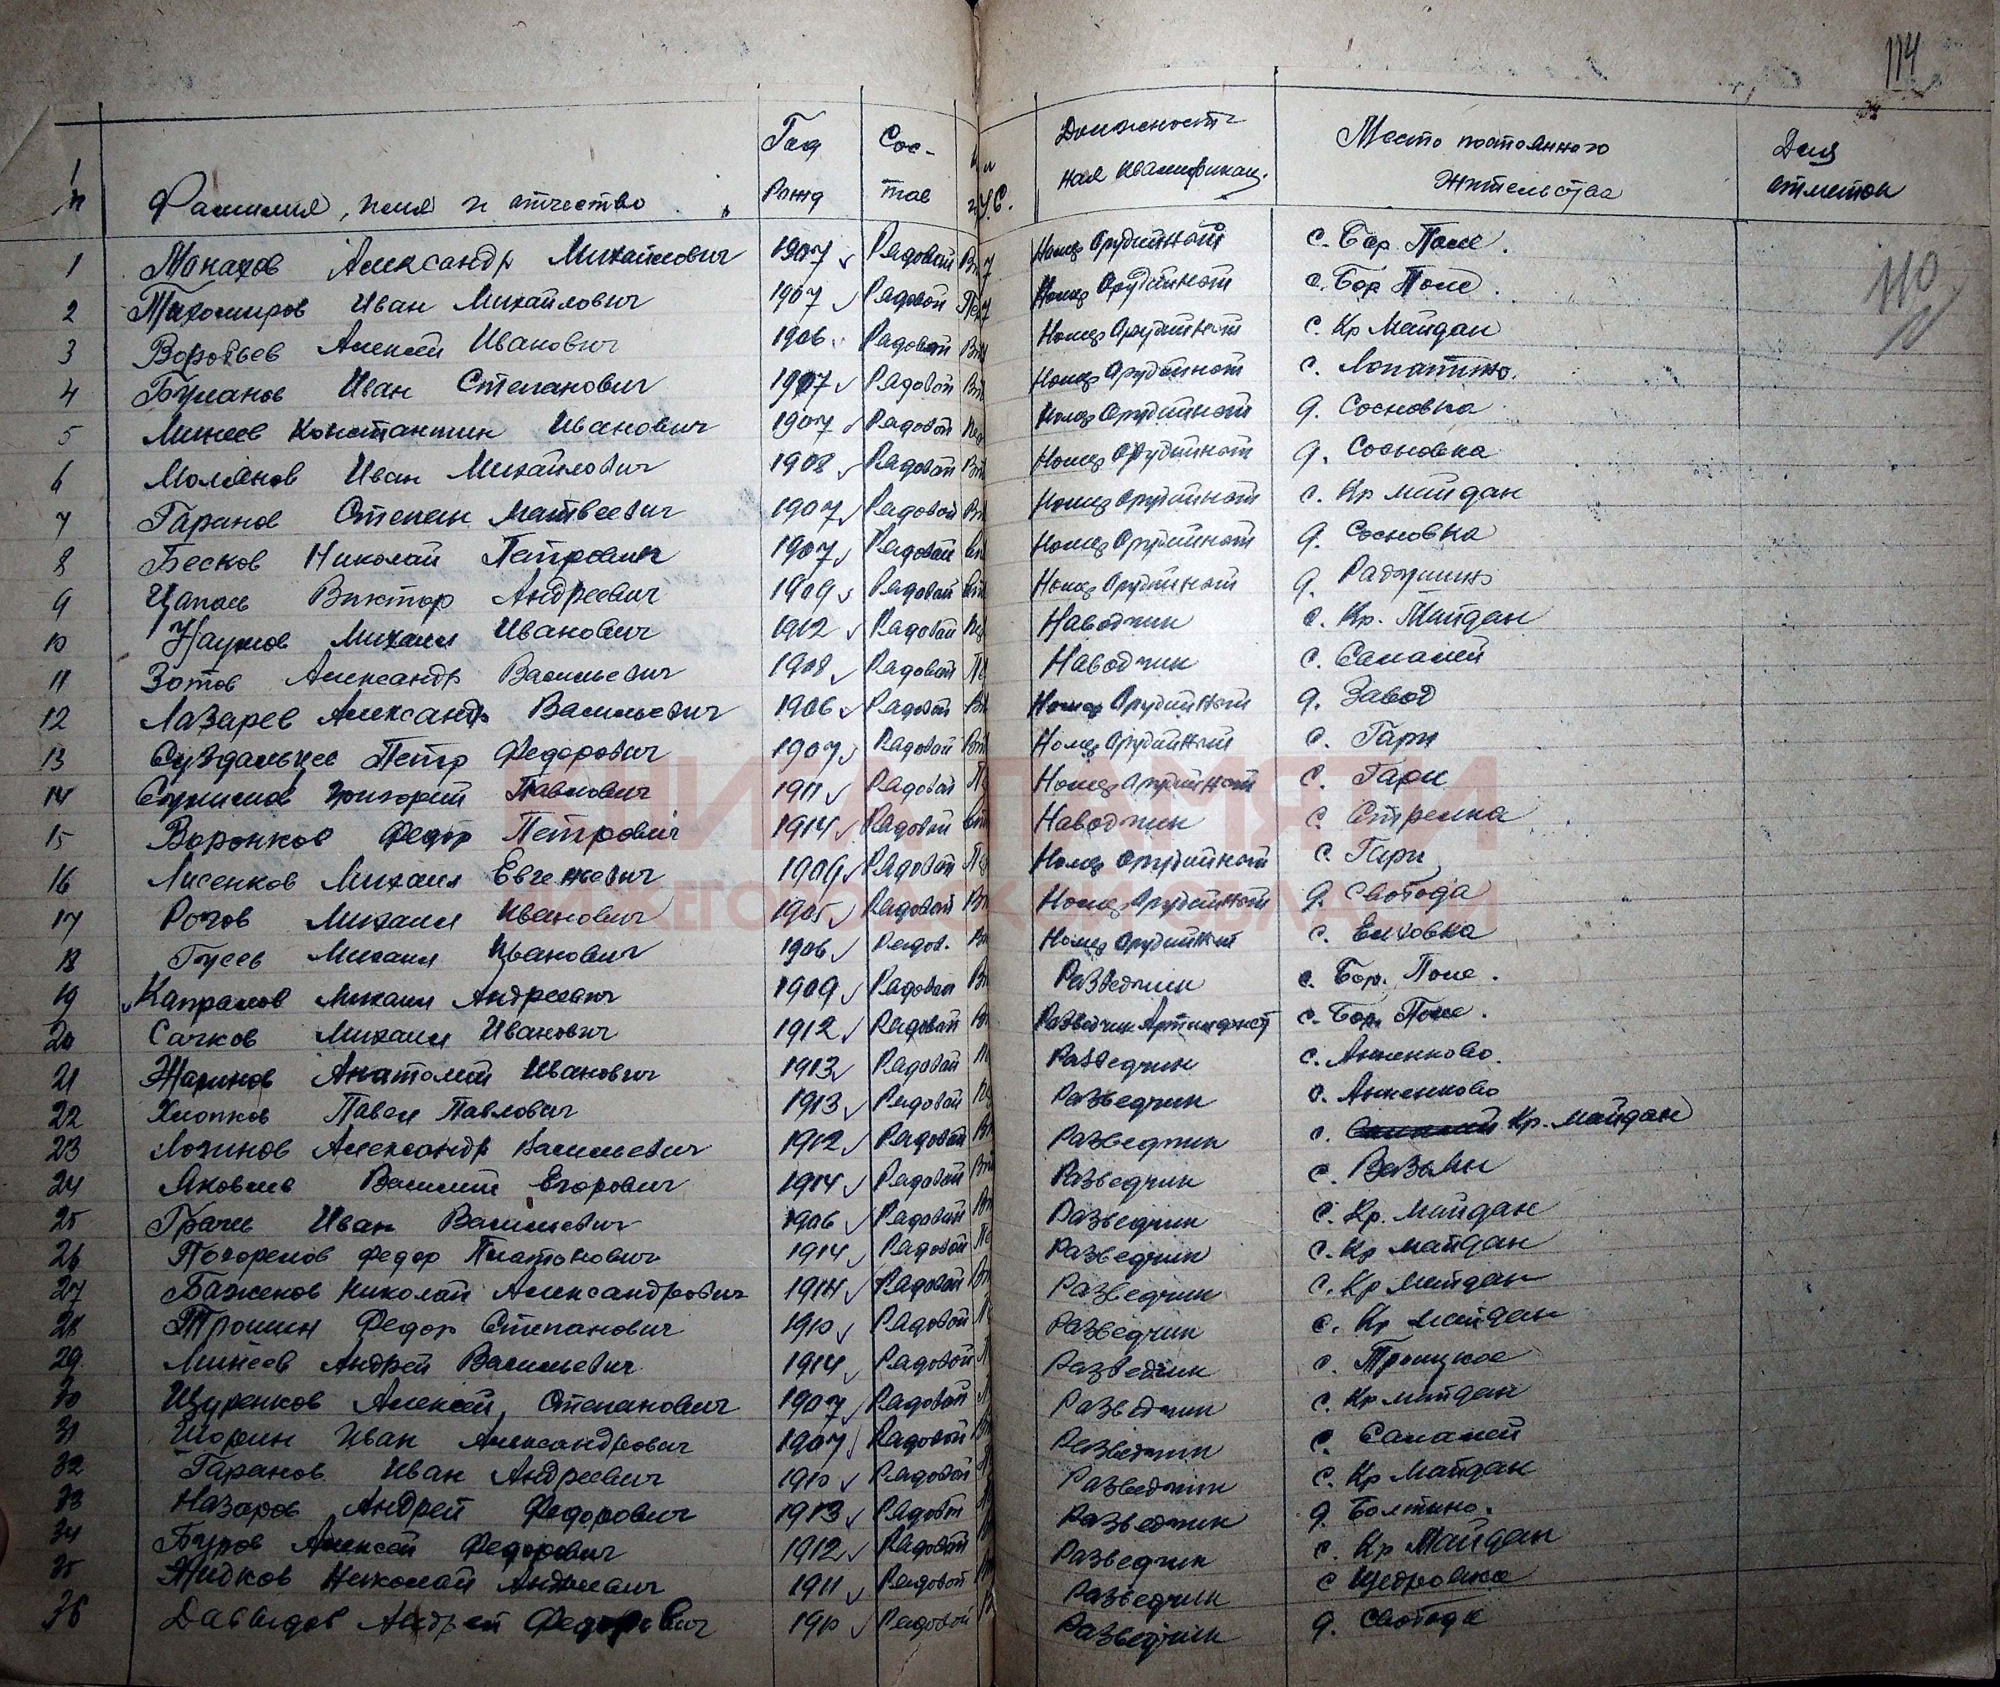 114
Фамилия, имя и отчество Год рожд Состав У.С. Должностная квалификац. Место постоянного жительства Для отметок
110
1 Монахов Александр Михайлович 1907 Рядовой Номер Орудийный с. Бор. Поле.
2 Тихомиров Иван Михайлович 1907 Рядовой Номер Орудийный с. Бор Поле.
3 Воробьев Алексей Иванович 1906 Рядовой Номер Орудийный с. Кр Майдан
4 Буланов Иван Степанович 1907 Рядовой Номер Орудийный с. Лопатино.
5 Минеев Константин Иванович 1907 Рядовой Номер Орудийный д. Сосновка
6 Иван Михайлович 1908 Рядовой Номер Орудийный д. Сосновка
7 Гаранов Степан Матвеевич 1907 Рядовой Номер Орудийный с. Кр майдан
8 Бесков Николай Петрович 1907 Рядовой Номер Орудийный д. Сосновка
9 Цапаев Виктор Андреевич 1909 Рядовой Номер Орудийный д.
10 Наумов Михаил Иванович 1912 Рядовой Наводчик с. Кр. Майдан
11 Зотов Александр Васильевич 1908 Рядовой Наводчик с. Саналей
12 Лазарев Александр Васильевич 1906 Рядовой Номер Орудийный д. Завод
13 Суздальцев Петр Федорович 1907 Рядовой Номер Орудийный с. Гари
14 Григорий Павлович 1911 Рядовой Номер Орудийный с. Гари
15 Воронков Федор Петрович 1914 Рядовой Наводчик с. Стрелка
16 Лисенков Михаил Евгеньевич Рядовой Номер Орудийный с. Гари
17 Рогов Михаил Иванович 1905 Рядовой Номер Орудийный д. Свобода
18 Гусев Михаил Иванович 1906 Рядов. Номер Орудийный с. Елховка
19 Капралов Михаил Андреевич 1909 Рядовой Разведчик с. Бор. Поле.
20 Сачков Михаил Иванович 1912 Рядовой Разведчик с. Бор. Поле.
21 Жаринов Анатолий Иванович 1913 Рядовой Разведчик с. Анненково.
22 Хлопков Павел Павлович 1913 Рядовой Разведчик с. Анненково
23 Логинов Александр Васильевич 1912 Рядовой Разведчик с. Кр. майдан
24 Яковлев Василий Егорович 1914 Рядовой Разведчик с. Вазьян
25 Грачев Иван Васильевич 1906 Рядовой Разведчик с. Кр. майдан
26 Погорелов Федор Платонович 1914 Рядовой Разведчик с. Кр майдан
27 Баженов Николай Александрович 1914 Рядовой Разведчик с. Кр майдан
28 Трошин Федор Степанович 1910 Рядовой Разведчик с. Кр майдан
29 Минеев Андрей Васильевич 1914 Рядовой Разведчик с. Троицкое
30 Щуренков Алексей Степанович 1907 Рядовой Разведчик с. Кр майдан
31 Шорин Иван Александрович 1907 Рядовой Разведчик с. Саналей
32 Гаранов Иван Андреевич 1910 Рядовой Разведчик с. Кр Майдан
33 Назаров Андрей Федорович 1913 Рядовой Разведчик д. Болтино.
34 Буров Алексей Федорович 1912 Рядовой Разведчик с. Кр Майдан
35 Жидков Николай Андреевич 1911 Рядовой Разведчик с Щедровка
36 Давыдов Андрей Федорович 1910 Рядовой Разведчик д. Свобода
КНИГА ПАМЯТИ
НИЖЕГОРОДСКОЙ ОБЛАСТИ